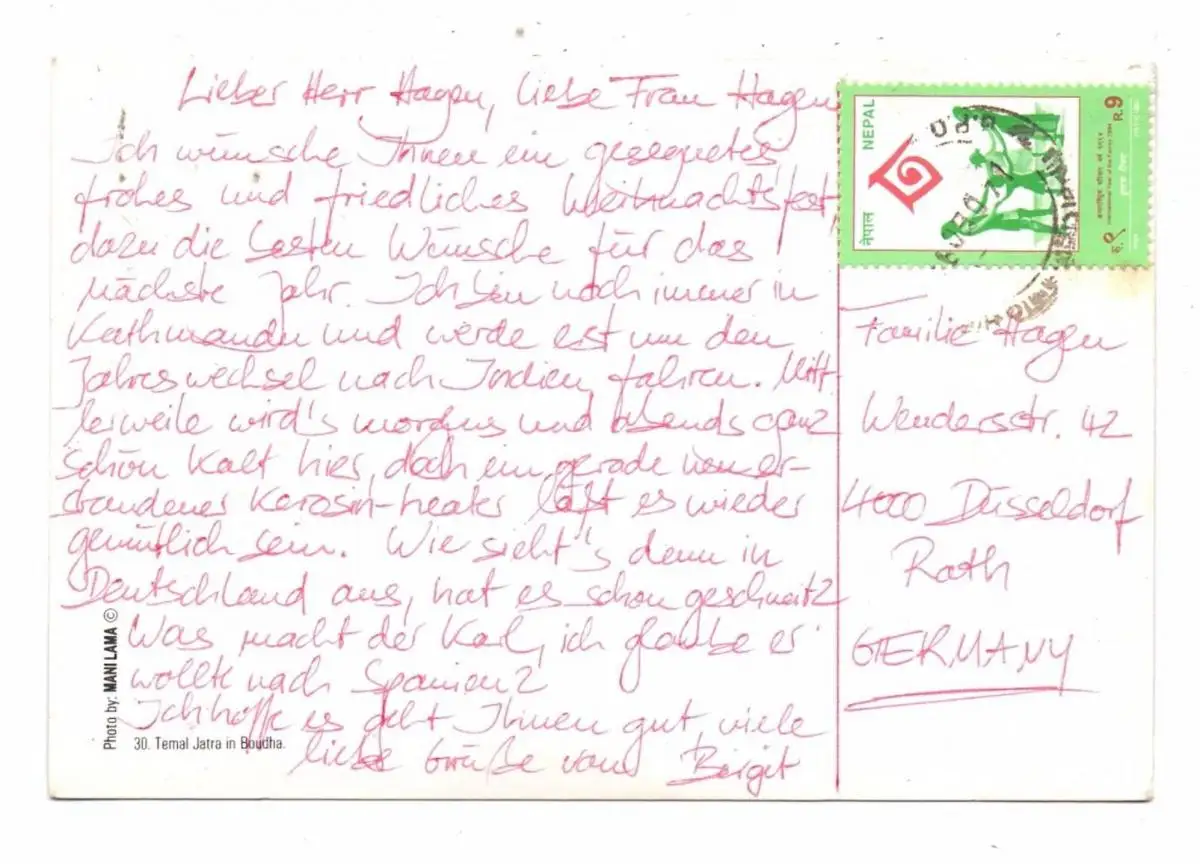 Lieber Herr Hagen, liebe Frau Hagen
Ich wünsche Ihnen ein gesegnetes
frohes und friedliches Weihnachtsfest,
dazu die besten Wünsche für das
nächste Jahr. Ich bin noch immer in
Kathmandu und werde erst um den
Jahreswechsel nach Indien fahren. Mitt-
lerweile wird's morgens und abends ganz
schön kalt hier, doch ein gerade neu er-
standener Kerosin-heater läßt es wieder
gemütlich sein. Wie sieht's denn in
Deutschland aus, hat es schon geschneit?
Was macht der Karl, ich glaube er
wollte nach Spanien?
Ich hoffe es geht Ihnen gut, viele
liebe Grüße von Birgit
Photo by: MANI LAMA ©
30. Temal Jatra in Boudha.
नेपाल NEPAL
International Year of the Family 1994
रु. ९ R.9
Familie Hagen
42
4000 Düsseldorf
Rath
GERMANY